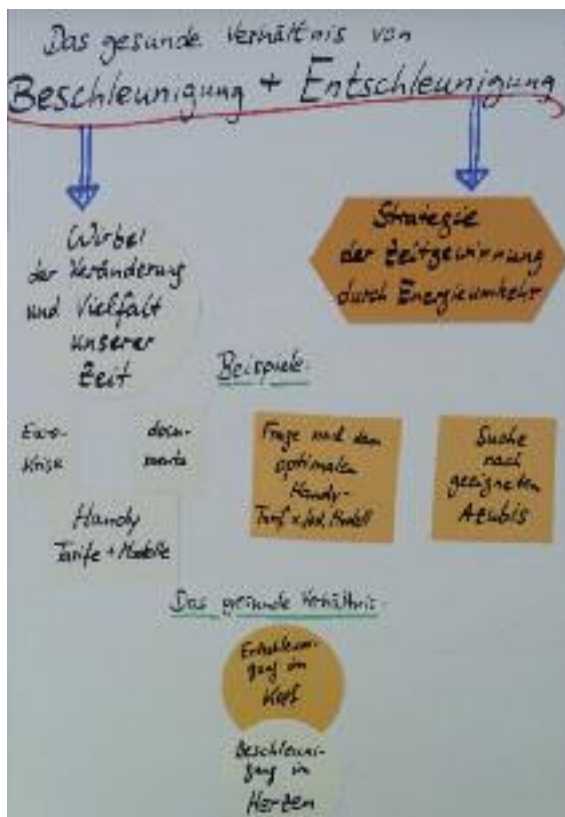 Das gesunde Verhältnis von
Beschleunigung + Entschleunigung
Wirbel
der Veränderung
und Vielfalt
unserer
Zeit
Strategie
der Zeitgewinnung
durch Energieumkehr
Beispiele:
Euro-
Krise
docu-
menta
Handy
Tarife + Modelle
Frage nach dem
optimalen
Handy-
Tarif Modell
Suche
nach
geeigneten
Azubis
Das gesunde Verhältnis:
Entschleuni-
gung im
Kopf
Beschleuni-
gung im
Herzen